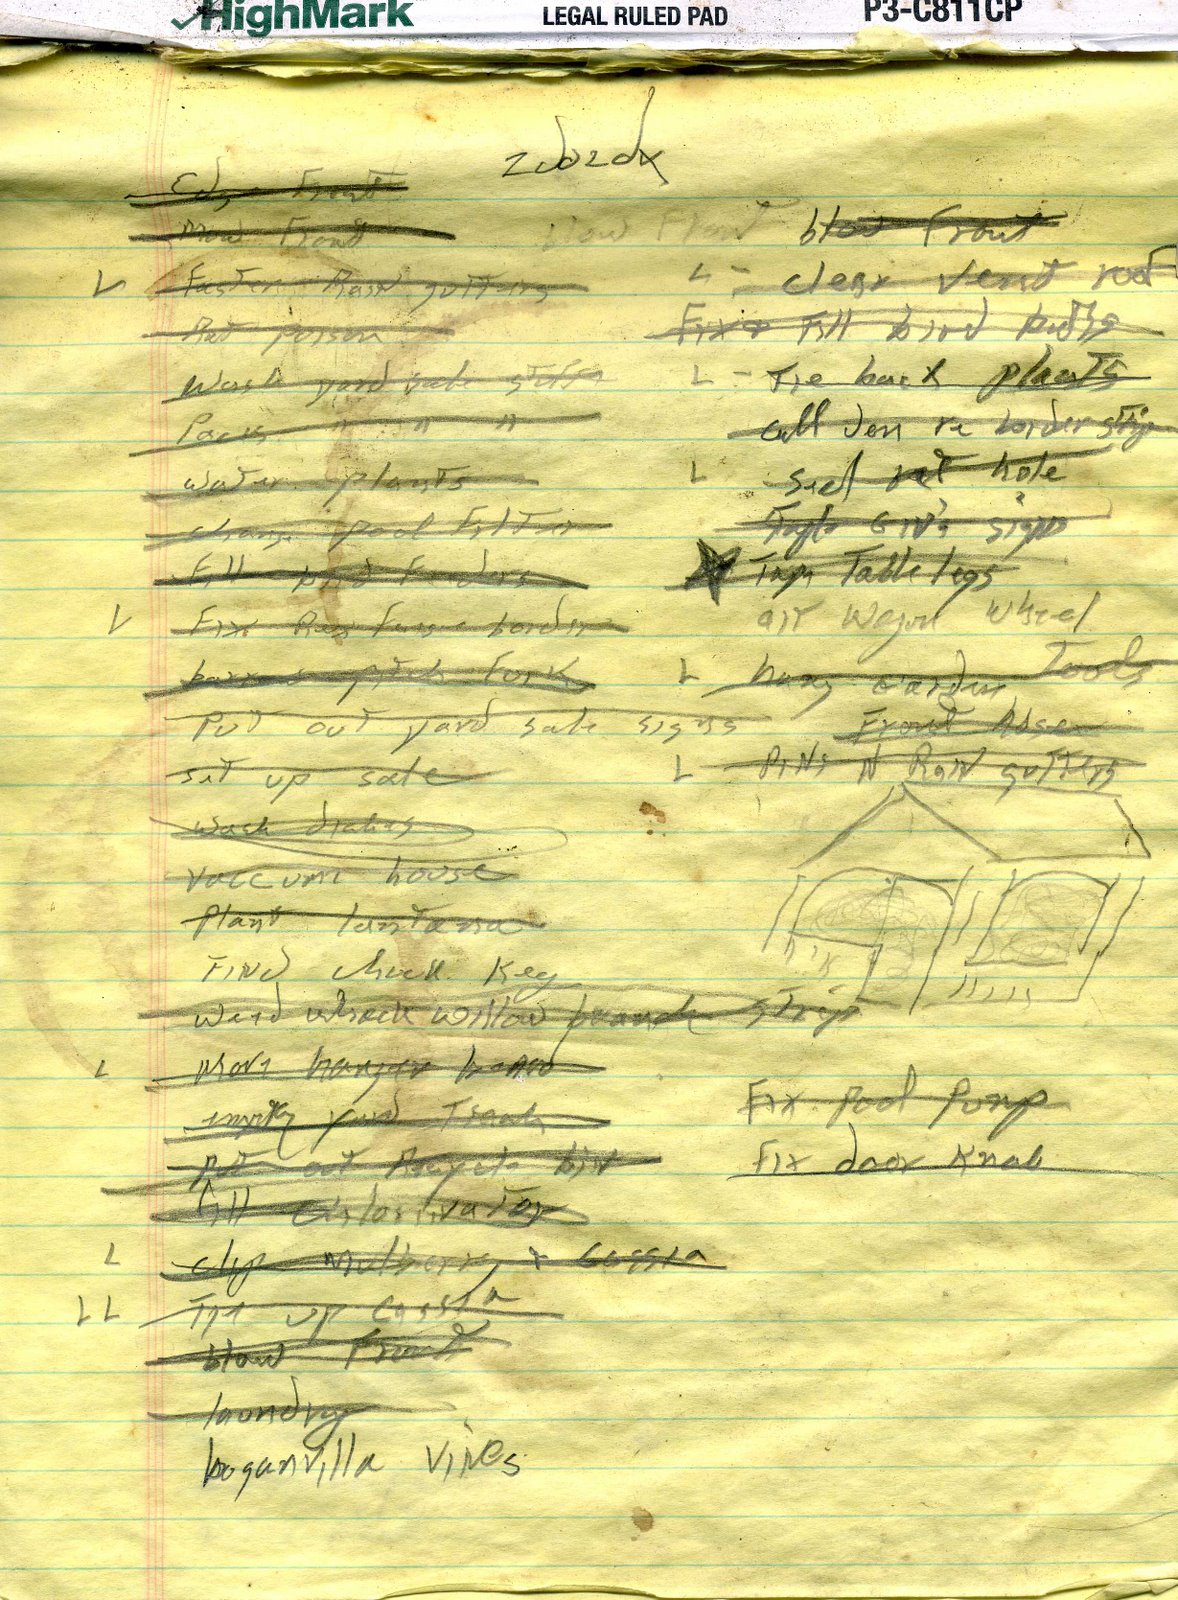 HighMark LEGAL RULED PAD P3-C811CP
Edge Front
Mow Front
blow Front
Fasten Rain gutters
Rat poison
Wash yard sale stuff
Pack " " "
water plants
change pool Filter
Fill bird Feeders
Fix Border
pitch Fork
Put out yard sale signs
set up sale
wash dishes
vaccume house
Plant lantana
FIND chuck Key
weed whack willow branch strip
L Move hanger
empty yard Trash
put out Recycle bin
Fill
L clip Mulberry + Cassia
LL Tie up Cassia
blow Front
laundry
boganvilla Vines
blow Front
L - clear vent roof
Fix + Fill bird baths
L - Tie back plants
call Jen re border strip
L seal rat hole
signs
Tape Table legs
air Wagon Wheel
L hang Garden Tools
Front hose
L PINS N RAIN gutters
Fix Pool Pump
Fix door Knob